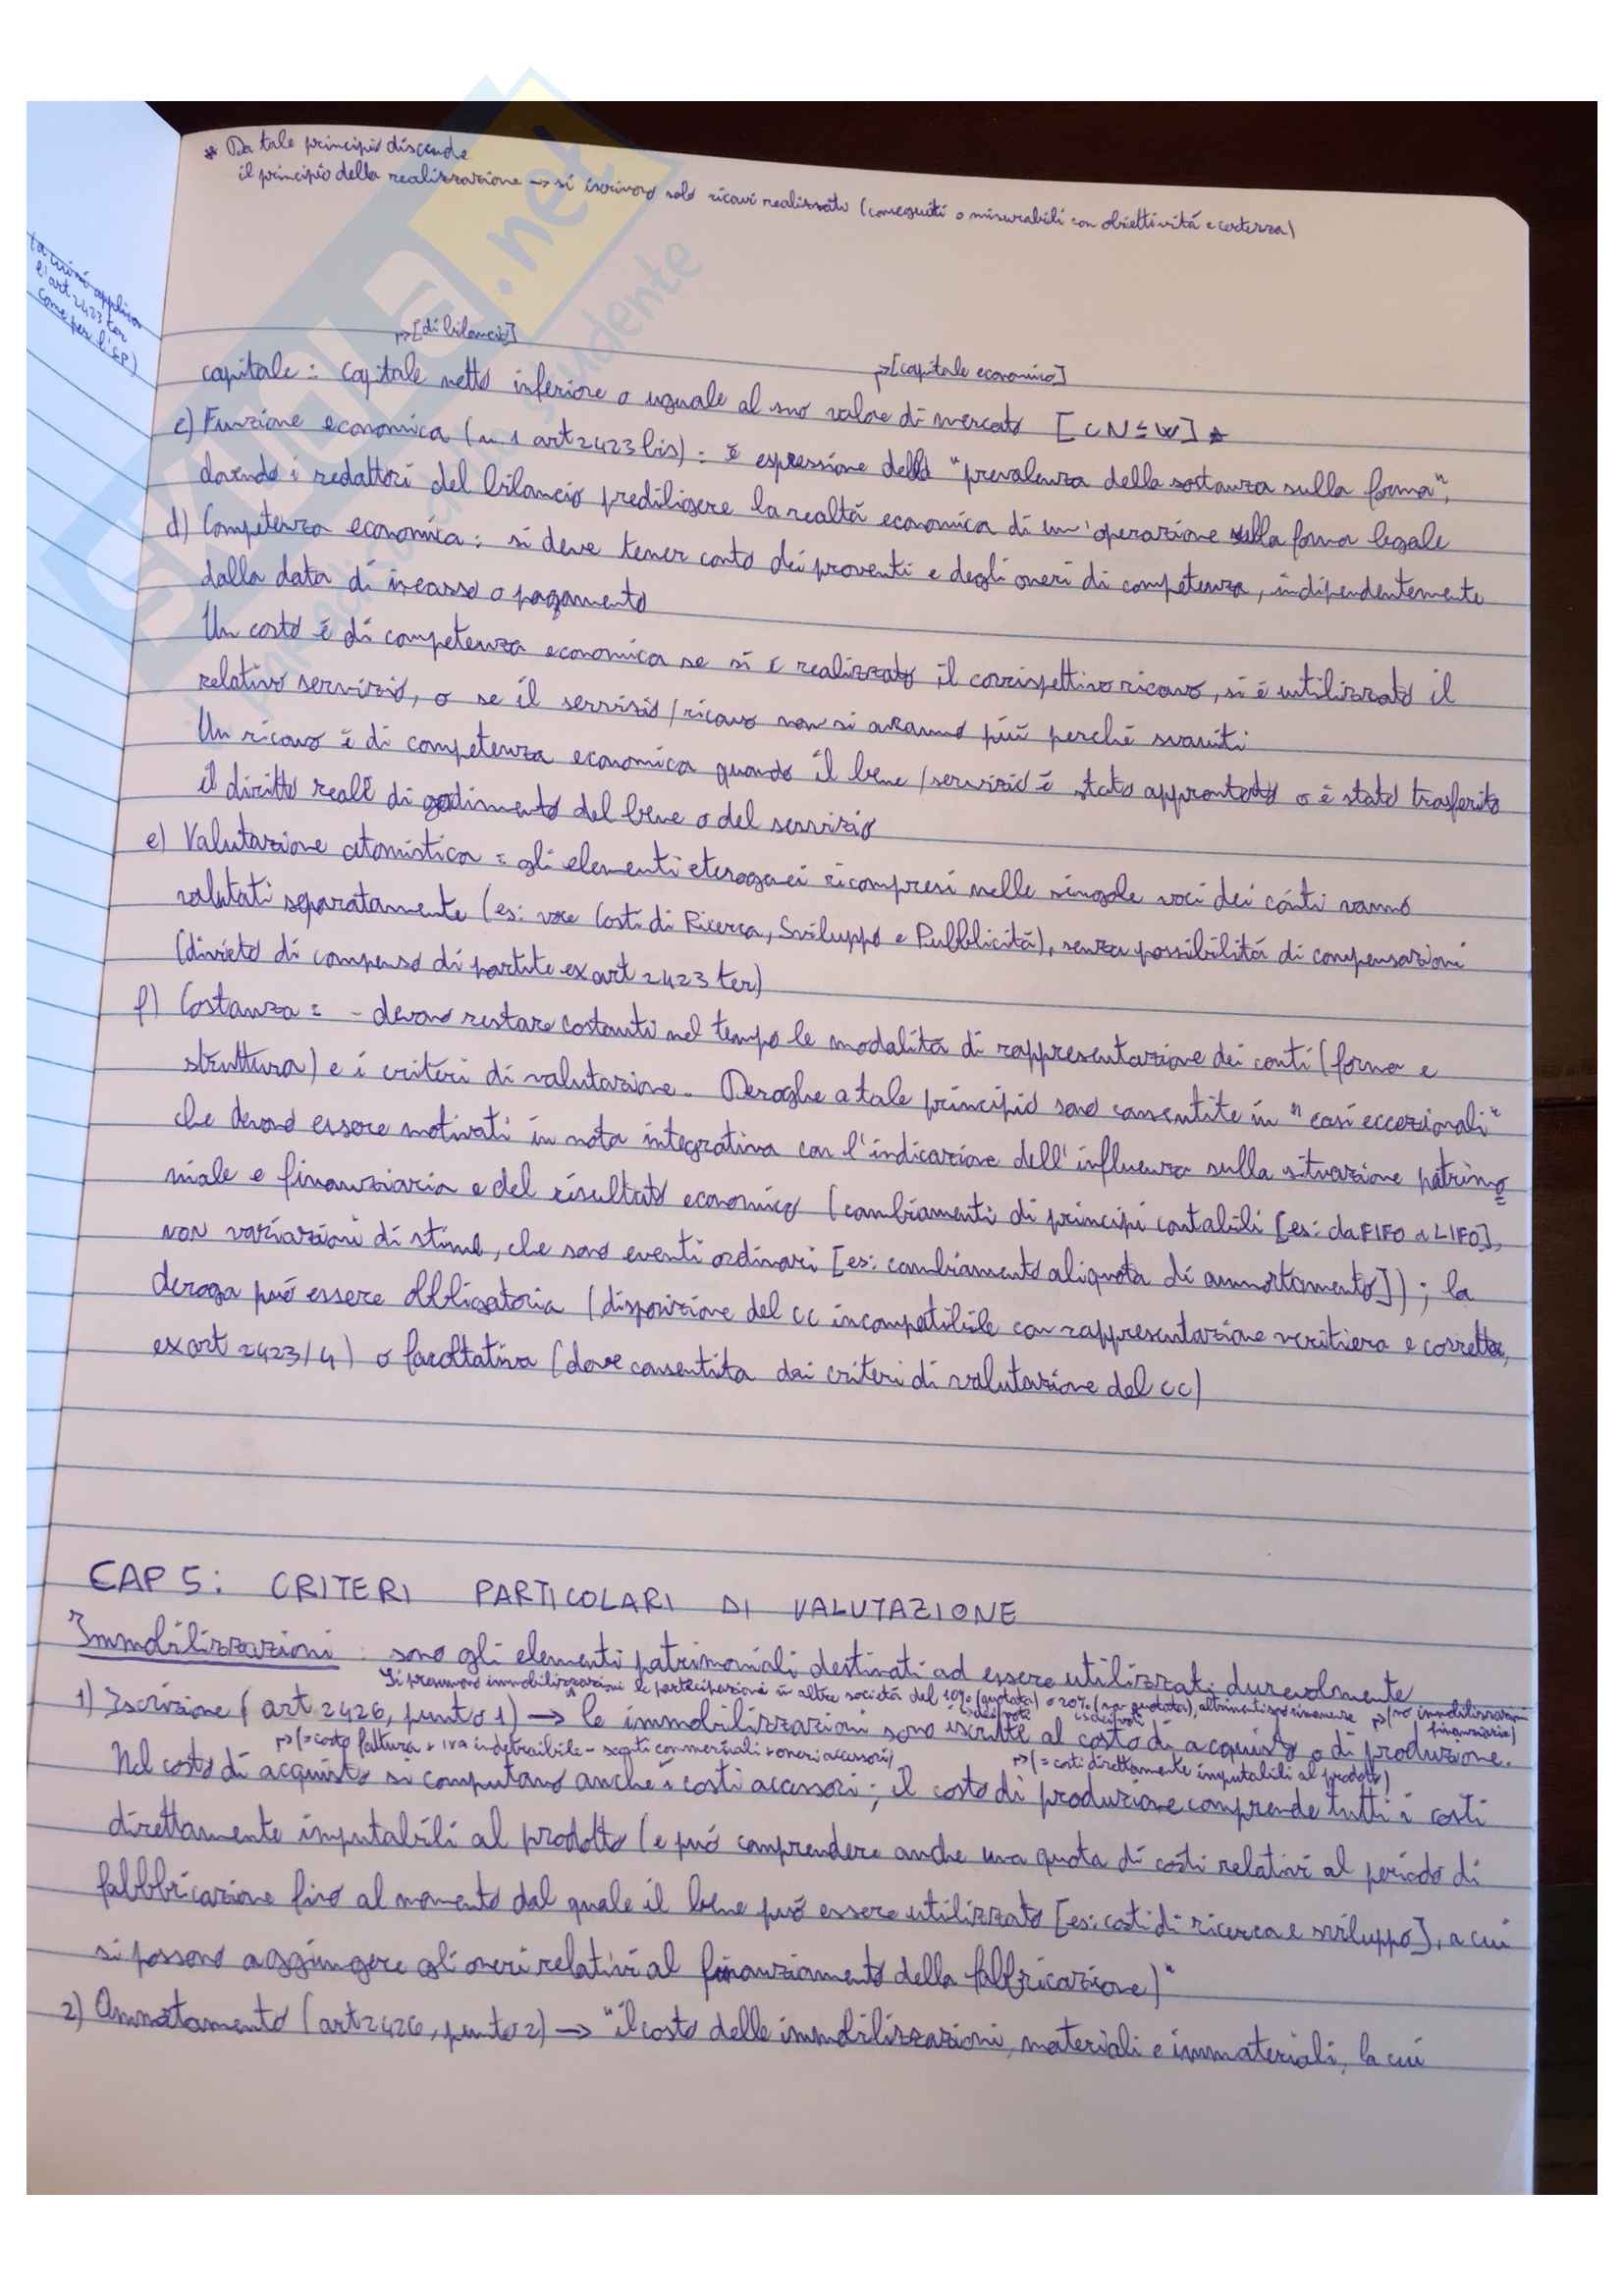 * Da tale principio discende
il principio della realizzazione → si iscrivono solo ricavi realizzati (conseguiti o misurabili con obiettività e certezza)
l'art 2423 ter
come per l'SP)
↱[di bilancio]
↱[capitale economico]
capitale: capitale netto inferiore o uguale al suo valore di mercato [CN ≤ W] *
c) Funzione economica (n 1 art 2423 bis): è espressione della "prevalenza della sostanza sulla forma",
dovendo i redattori del bilancio prediligere la realtà economica di un'operazione sulla forma legale
d) Competenza economica: si deve tener conto dei proventi e degli oneri di competenza, indipendentemente
dalla data di incasso o pagamento
Un costo è di competenza economica se si è realizzato il corrispettivo ricavo, si è utilizzato il
relativo servizio, o se il servizio/ricavo non si avranno più perché svaniti
Un ricavo è di competenza economica quando il bene/servizio è stato approntato o è stato trasferito
il diritto reale di godimento del bene o del servizio
e) Valutazione atomistica: gli elementi eterogenei ricompresi nelle singole voci dei conti vanno
valutati separatamente (es: voce Costi di Ricerca, Sviluppo e Pubblicità), senza possibilità di compensazioni
(divieto di compenso di partite ex art 2423 ter)
f) Costanza: - devono restare costanti nel tempo le modalità di rappresentazione dei conti (forma e
struttura) e i criteri di valutazione. Deroghe a tale principio sono consentite in "casi eccezionali"
che devono essere motivati in nota integrativa con l'indicazione dell'influenza sulla situazione patrimo
niale e finanziaria e del risultato economico (cambiamenti di principi contabili [es: da FIFO a LIFO],
non variazioni di stime, che sono eventi ordinari [es: cambiamento aliquota di ammortamento]); la
deroga può essere obbligatoria (disposizione del cc incompatibile con rappresentazione veritiera e corretta,
ex art 2423/4) o facoltativa (dove consentita dai criteri di valutazione del cc)
CAP 5: CRITERI PARTICOLARI DI VALUTAZIONE
Immobilizzazioni: sono gli elementi patrimoniali destinati ad essere utilizzati durevolmente
Si presumono immobilizzazioni le partecipazioni in altre società del 10% (quotata) o 20% (non quotata), altrimenti
↱(no immobilizzazioni
finanziarie)
1) Iscrizione (art 2426, punto 1) → le immobilizzazioni sono iscritte al costo di acquisto o di produzione.
↱(= costo fattura + iva indetraibile - sconti commerciali + oneri accessori)
↱(= costi direttamente imputabili al prodotto)
Nel costo di acquisto si computano anche i costi accessori; il costo di produzione comprende tutti i costi
direttamente imputabili al prodotto (e può comprendere anche una quota di costi relativi al periodo di
fabbbricazione fino al momento dal quale il bene può essere utilizzato [es: costi di ricerca e sviluppo], a cui
si possono aggiungere gli oneri relativi al finanziamento della fabbricazione)"
2) Ammotamento (art 2426, punto 2) → "il costo delle immobilizzazioni, materiali e immateriali, la cui